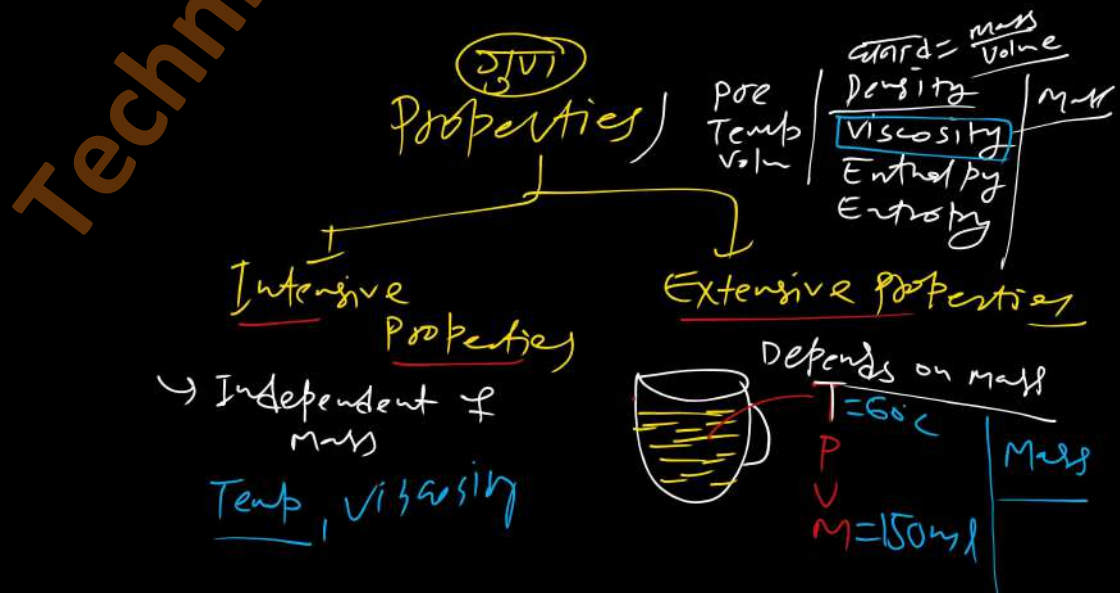 Techn
गुण
Properties
Pre
Temp
Volm
घनत्व = Mass
Volme
Density
Viscosity
Enthalpy
Entropy
Mass
Intensive
Properties
→ Independent of
Mass
Temp, Viscosity
Extensive Properties
Depends on Mass
T = 60°C
P
V
M = 150ml
Mass